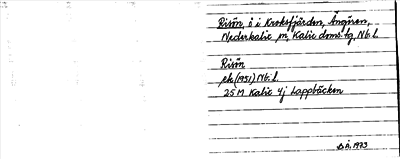 Risön, ö i Kroksfjärden, Ängön,
Nederkalix sn, Kalix doms. tg, Nb. l.
Risön
ek. (1951) Nb. l.
25 M Kalix 4j Lappbäcken
1973